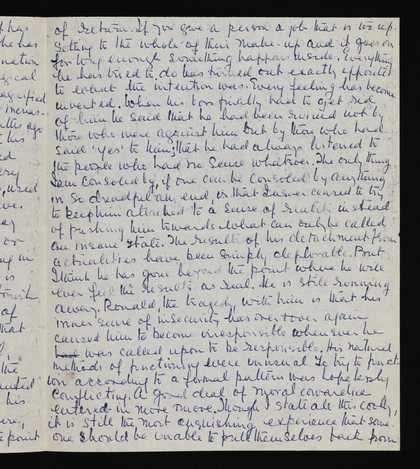 f has
he has
nation
gical
magnified
increas-
after age
t his
ed
very
, used
ive.
or
ng in
is
of
that
the
his
are,
to point
of return. If you give a person a job that is too up-
setting to the whole of their make-up and it goes on
for long enough something happens inside. Everything
he has tried to do has turned out exactly opposite
to what the intention was. Every feeling has become
inverted. When his Boss finally had to get rid
of him he said that he had been ruined not by
those who were against him but by those who had
said 'yes' to him; that he had always listened to
the people who had no sense whatever. The only thing
I am consoled by, if one can be consoled by anything
in so dreadful an end, is that I never ceased to try
to keep him attached to a sense of reality instead
of pushing him towards what can only be called
an insane state. The results of his detachment from
actualities have been simply deplorable. But
I think he has gone beyond the point where he will
ever feel the results as real. He is still running
away. Ronald, the tragedy with him is that his
inner sense of insecurity has over & over again
caused him to become irresponsible whenever he
was called upon to be responsible. His natural
methods of functioning were unusual. To try to funct-
ion according to a formal pattern was hopelessly
conflicting. A good deal of moral cowardice
entered in more & more. Though I state all this coolly,
it is still the most anguishing experience that some-
one should be unable to pull themselves back from